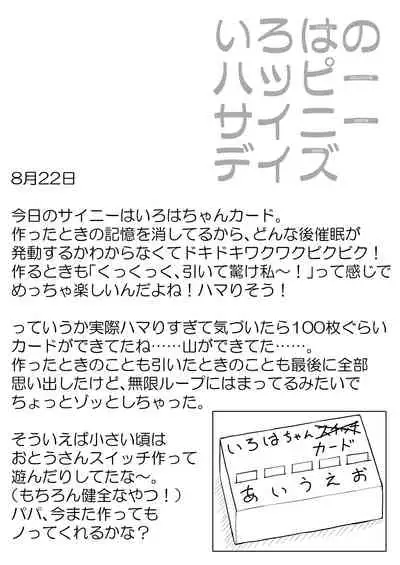 いろはの
ハッピー
サイニー
デイズ
8月22日
今日のサイニーはいろはちゃんカード。
作ったときの記憶を消してるから、どんな後催眠が
発動するかわからなくてドキドキワクワクビクビク!
作るときも「くっくっく、引いて驚け私〜!」って感じで
めっちゃ楽しいんだよね!ハマりそう!
っていうか実際ハマりすぎて気づいたら100枚ぐらい
カードができてたね……山ができてた……。
作ったときのことも引いたときのことも最後に全部
思い出したけど、無限ループにはまってるみたいで
ちょっとゾッとしちゃった。
そういえば小さい頃は
おとうさんスイッチ作って
遊んだりしてたな〜。
(もちろん健全なやつ!)
パパ、今また作っても
ノってくれるかな?
いろはちゃんスイッチ
カード
あいうえお